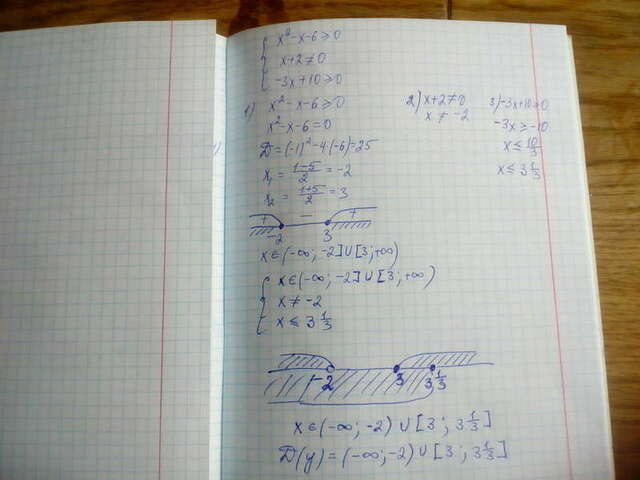 x² - x - 6 ≥ 0
x + 2 ≠ 0
-3x + 10 ≥ 0
1) x² - x - 6 ≥ 0
x² - x - 6 = 0
D = (-1)² - 4·(-6) = 25
x₁ = (1-5)/2 = -2
x₂ = (1+5)/2 = 3
+ - +
-2 3
x ∈ (-∞; -2] ∪ [3; +∞)
2) x + 2 ≠ 0
x ≠ -2
3) -3x + 10 ≥ 0
-3x ≥ -10
x ≤ 10/3
x ≤ 3 1/3
x ∈ (-∞; -2] ∪ [3; +∞)
x ≠ -2
x ≤ 3 1/3
-2 3 3 1/3
x ∈ (-∞; -2) ∪ [3; 3 1/3]
D(y) = (-∞; -2) ∪ [3; 3 1/3]